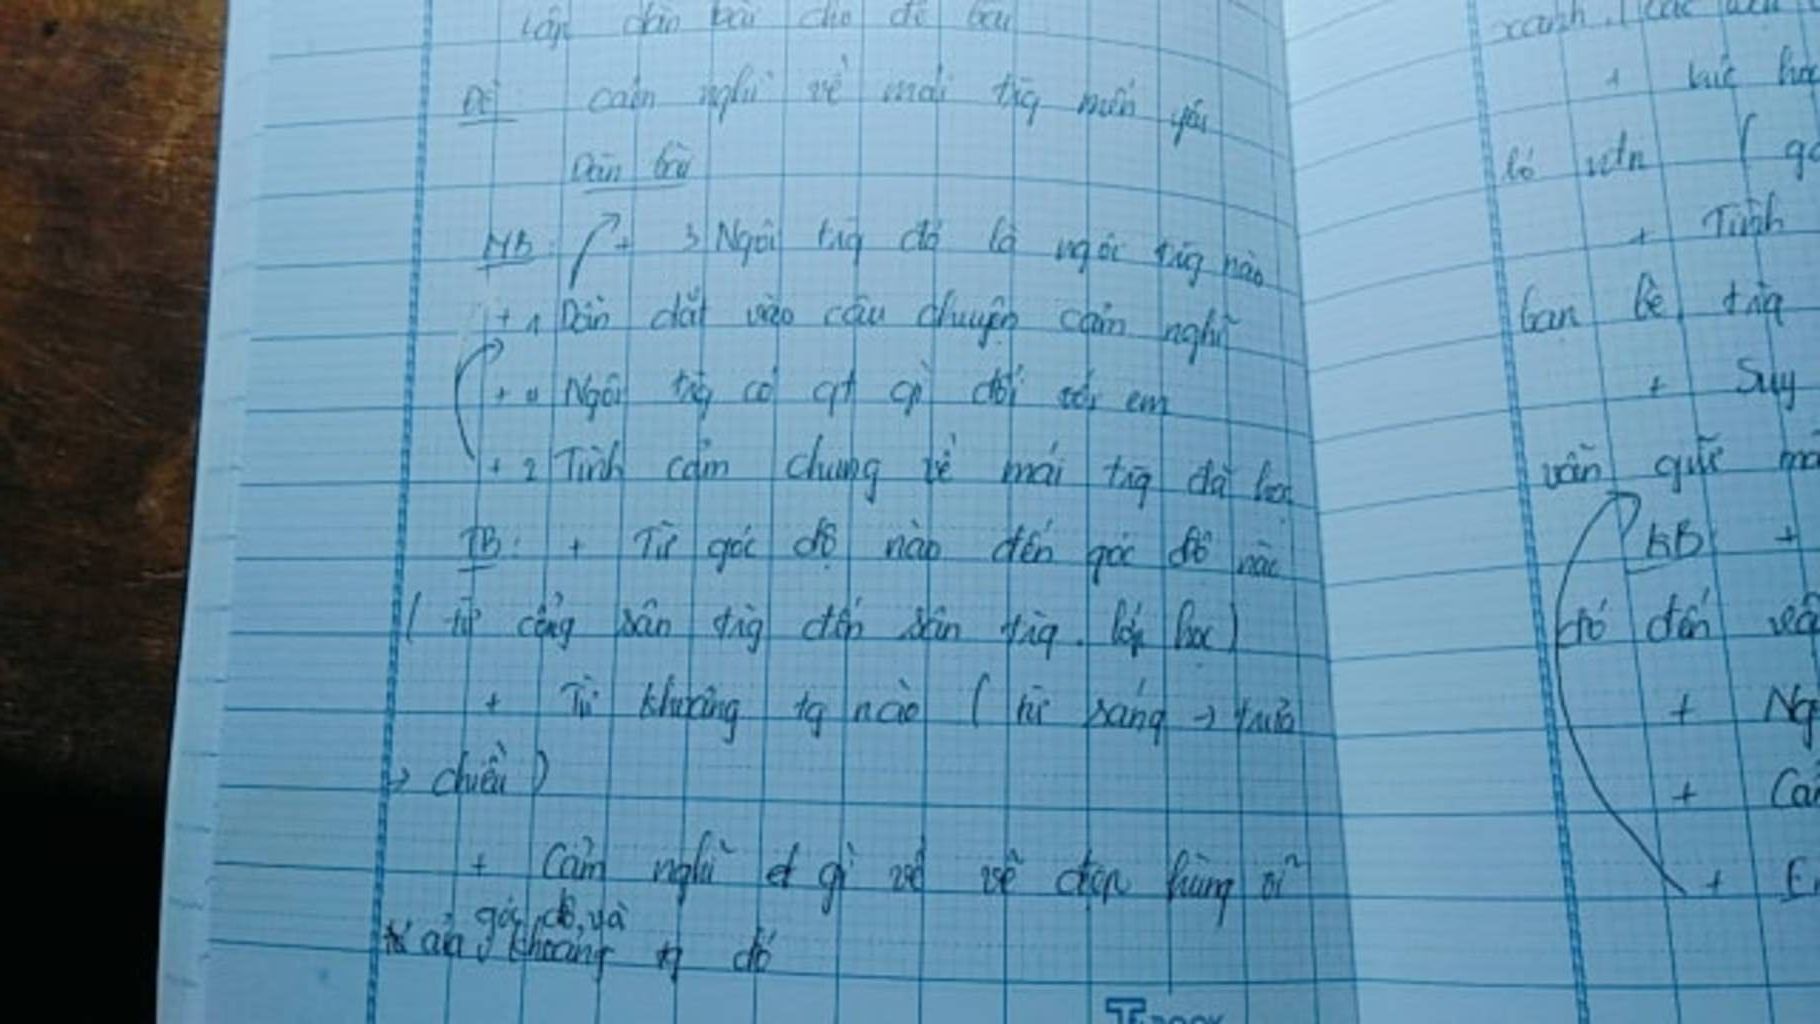 Lập dàn bài cho đề bài
Đề: cảm nghĩ về mái trg mến yêu
Dàn bài
MB: + 3 Ngôi trg đó là ngôi trg nào
+ 1 Dẫn dắt vào câu chuyện cảm nghĩ
+ Ngôi trg có gì đối với em
+ 2 Tình cảm chung về mái trg đã học
TB: + Từ góc độ nào đến góc độ nào
( từ cổng sân trg đến sân trg. lớp học)
+ Từ khoảng tg nào ( từ sáng → trưa
→ chiều )
+ Cảm nghĩ gì về vẻ đẹp hùng vĩ
góc độ, và
của khoảng tg đó
xanh. (các
+ lúc học
bó
+ Tình
bạn bè trg
+ Suy
vẫn giữ
KB +
đó đến
+
+
+